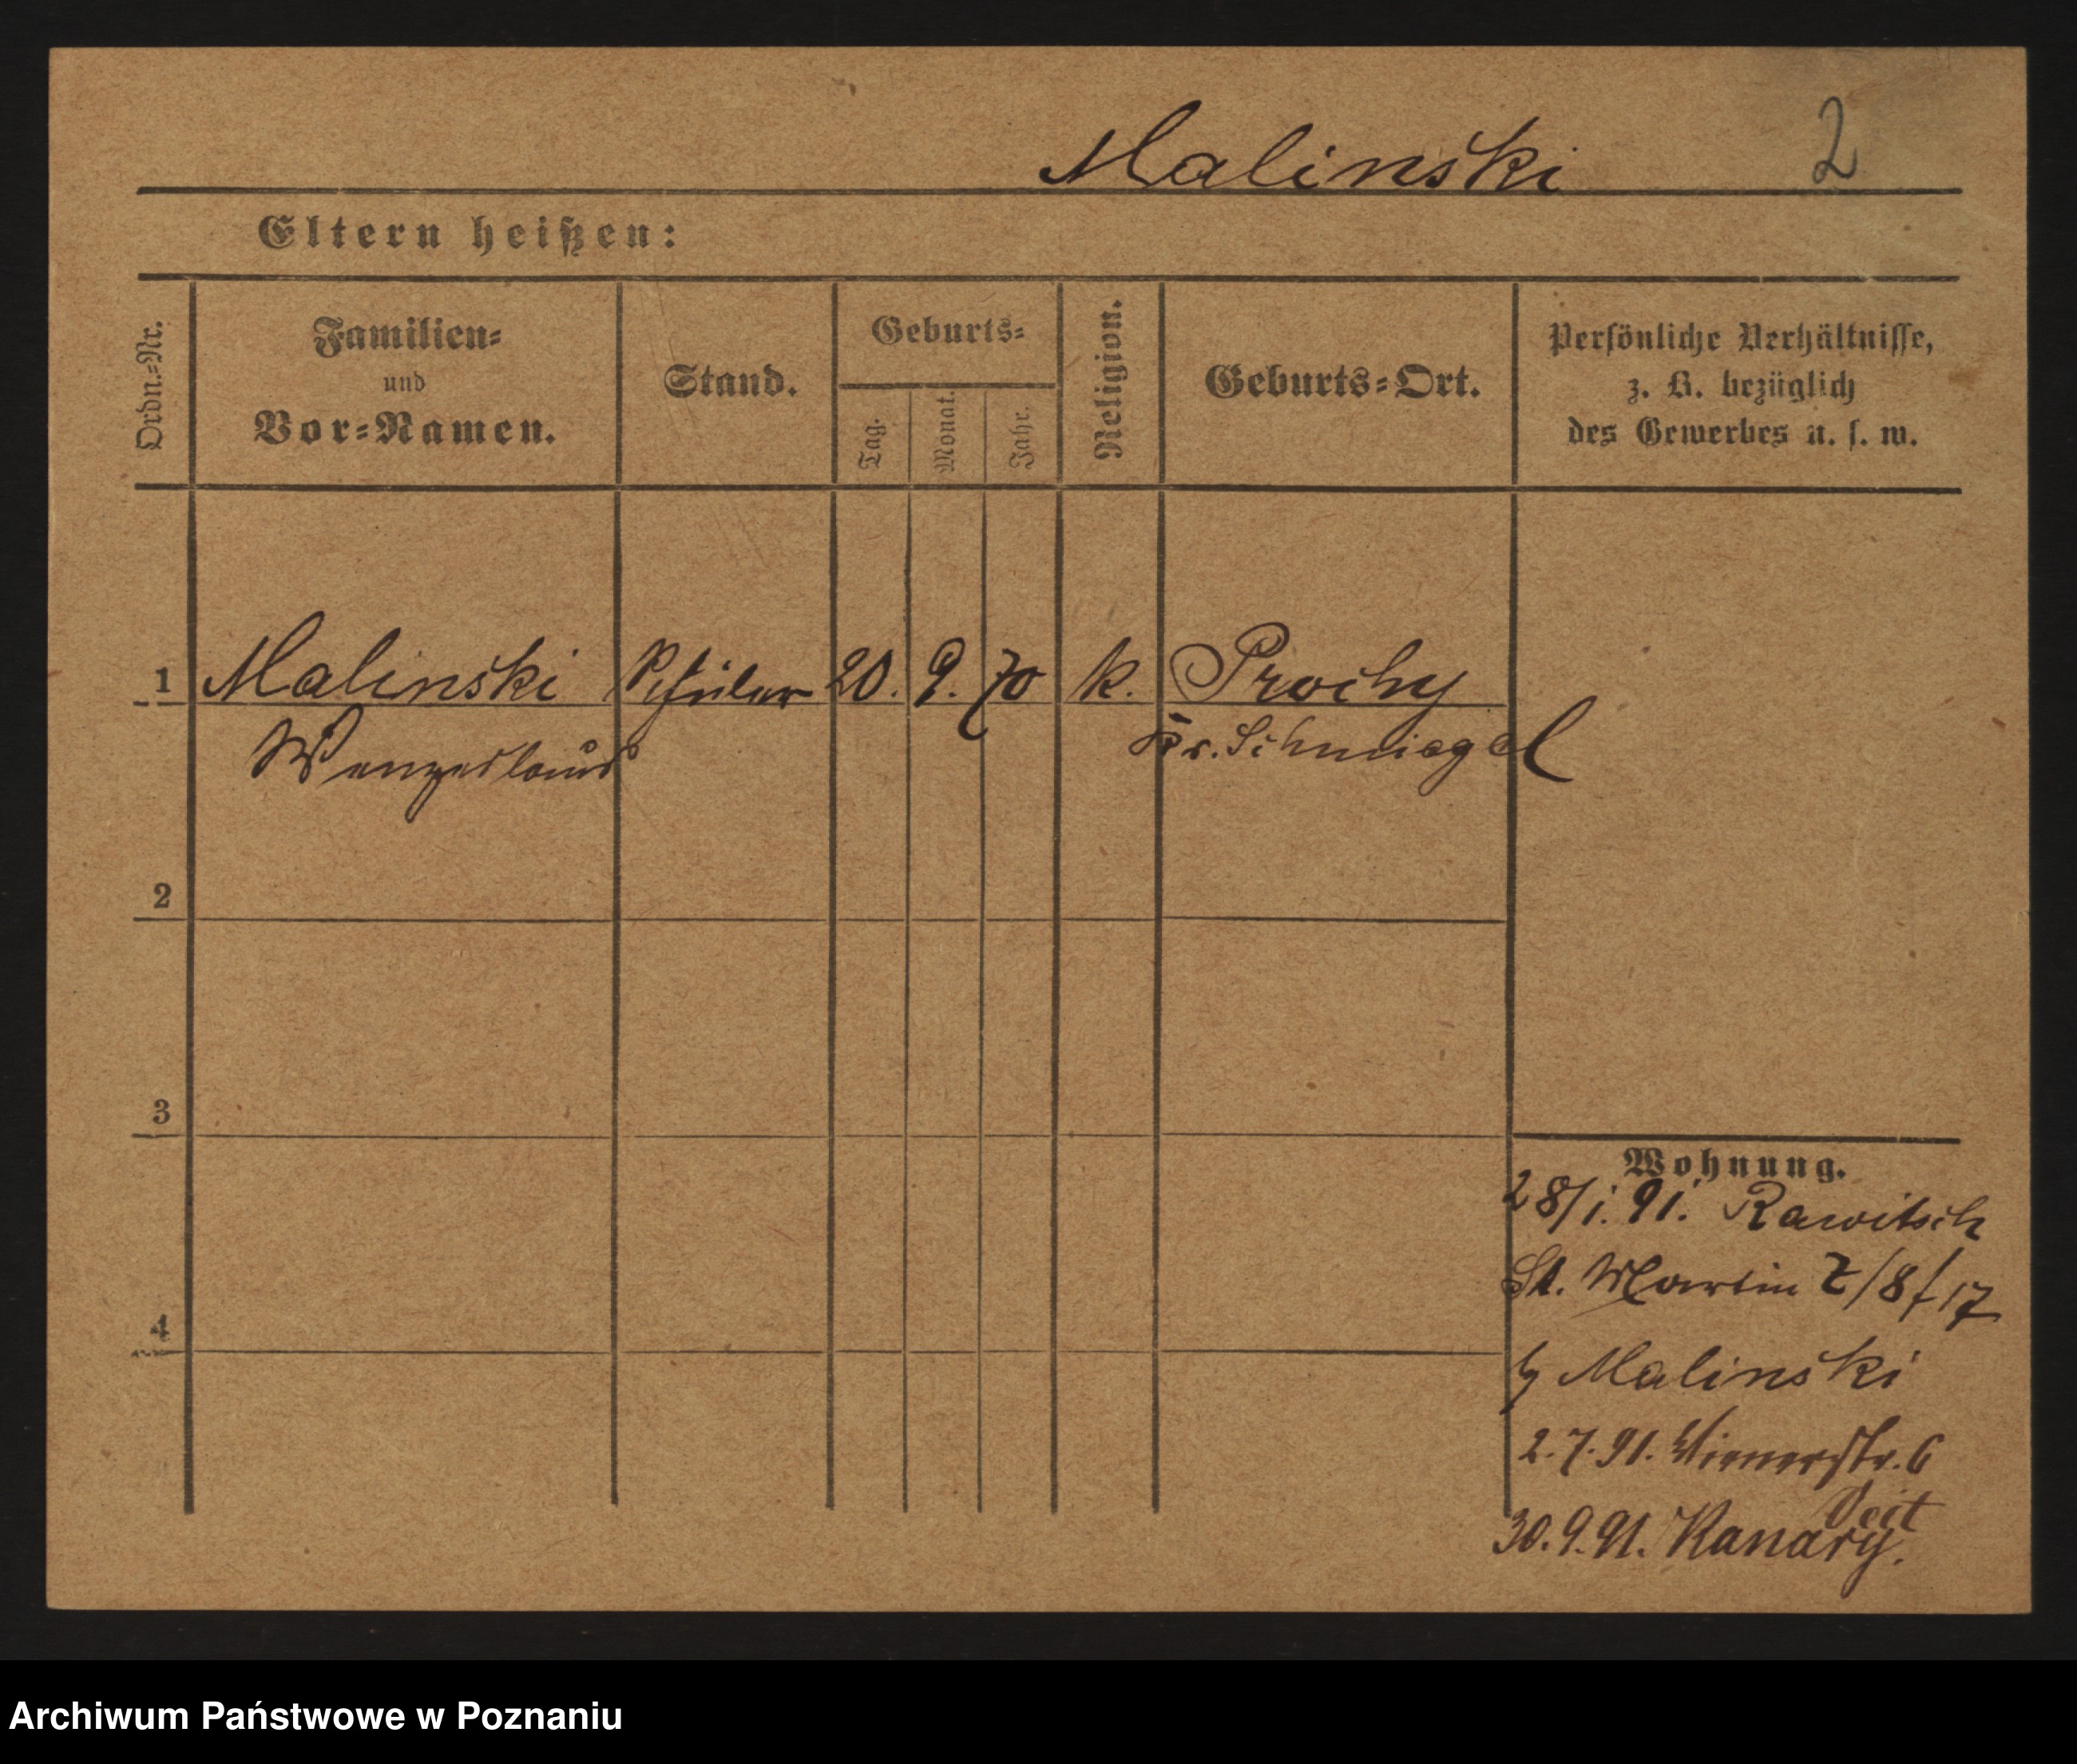 Malinski 2
Eltern heißen:
Ordn.=Nr.
Familien=
und
Vor=Namen.
Stand.
Geburts=
Tag.
Monat.
Jahr.
Religion.
Geburts=Ort.
Persönliche Verhältnisse,
z. B. bezüglich
des Gewerbes u. s. w.
1 Malinski Schüler 20. 9. 70 k. Prochy
Wenzeslaus Kr. Schmiegel
2
3
4
Wohnung.
28/1. 91. Rawitsch
St. Martin 7/8 f 17
b Malinski
2.7.91. Wienerstr. 6
Veit
30.9.91. Kanary.
Archiwum Państwowe w Poznaniu